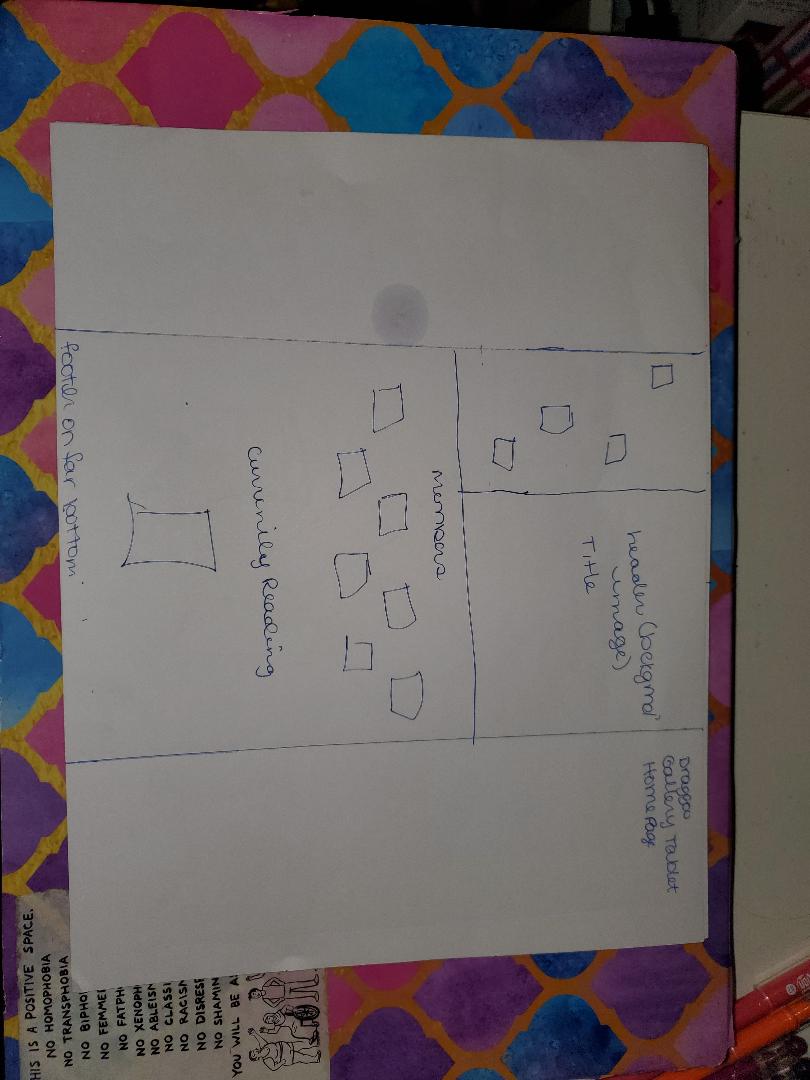 Gallery Tablet
Home Page
header (backgrnd
image)
Title
members
Currently Reading
footer on far bottom
HIS IS A POSITIVE SPACE.
NO HOMOPHOBIA
NO TRANSPHOBIA
NO BIPHO
NO FEMME
NO FATPH
NO XENOPH
NO ABLEISM
NO CLASSI
NO RACISM
NO DISRESP
NO SHAMIN
YOU WILL BE A